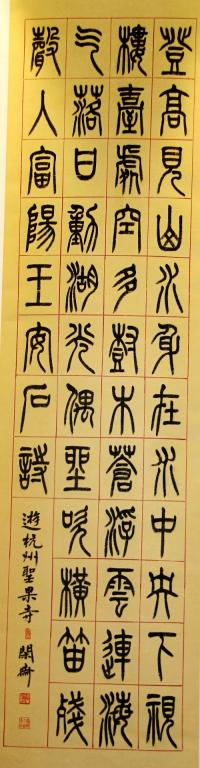 登高見山水身在水中央下視
樓臺處空多樹木蒼浮雲連海
气落日動湖光偶坐吹橫笛殘
聲入富陽王安石詩
遊杭州聖果寺 閑齋